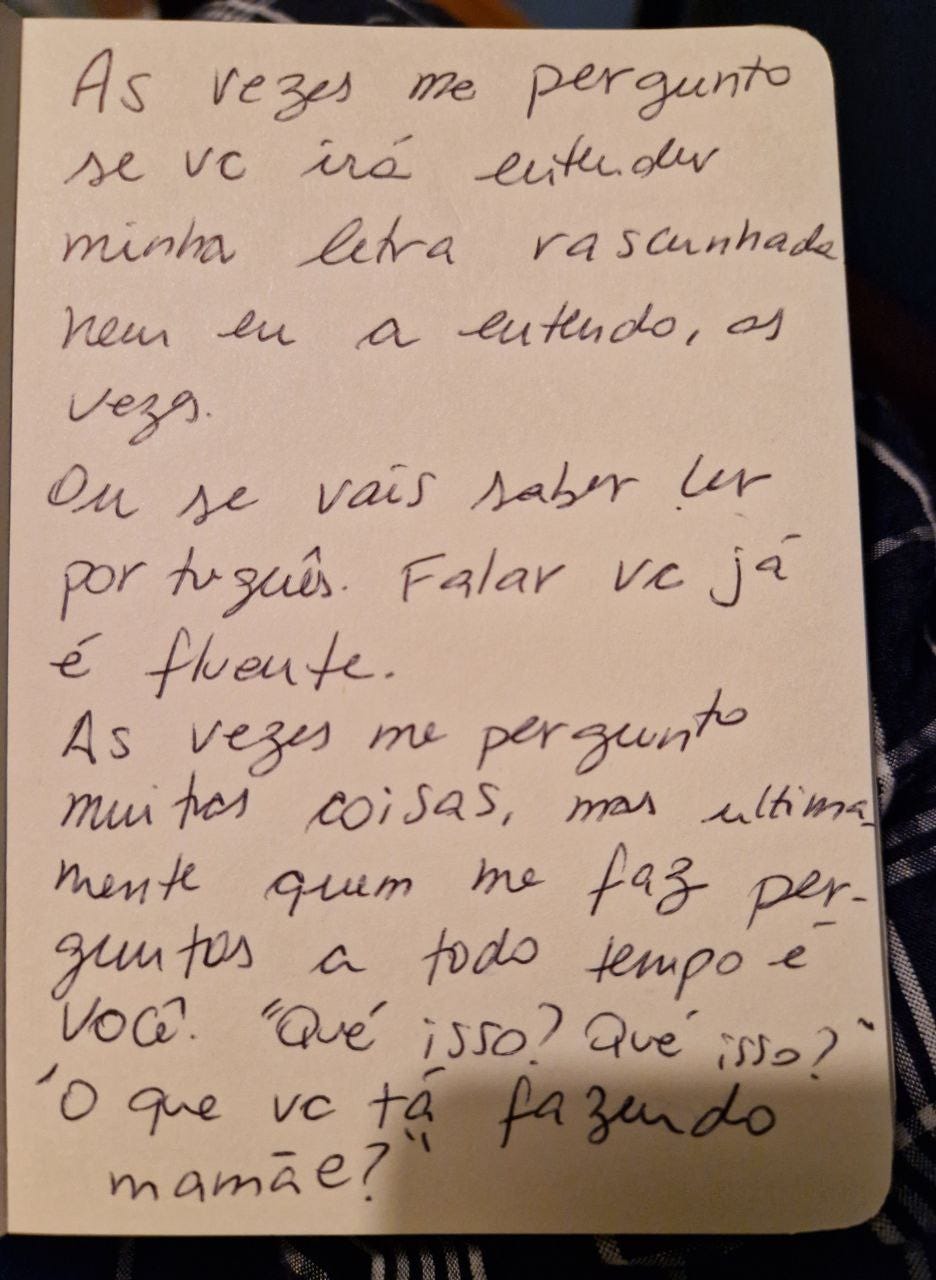 As vezes me pergunto
se vc irá entender
minha letra rascunhada
nem eu a entendo, as
vezes.
Ou se vais saber ler
português. Falar vc já
é fluente.
As vezes me pergunto
muitas coisas, mas ultima-
mente quem me faz per-
guntas a todo tempo é
você. "Qué isso? Qué isso?"
"O que vc tá fazendo
mamãe?"